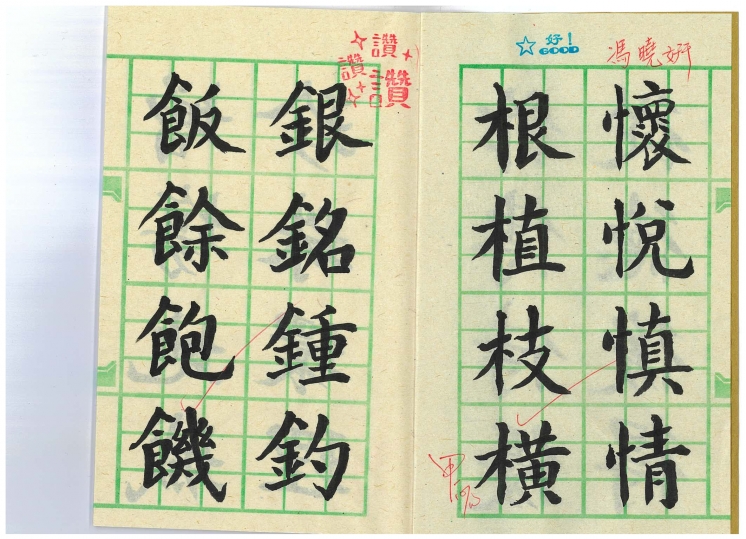 馮曉妍
好!
GOOD
懷悅慎情
根植枝橫
讚
讚
讚
銀銘鍾釣
飯餘飽饑
甲